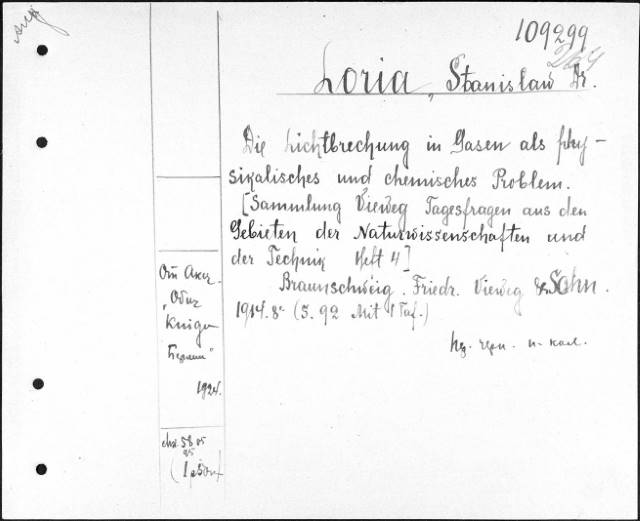 109299
Loria, Stanislaw Dr.
Die Lichtbrechung in Gasen als phy-
sikalisches und chemisches Problem.
[Sammlung Vieweg Tagesfragen aus den
Gebieten der Naturwissenschaften und
der Technik Heft 4]
Braunschweig. Friedr. Vieweg & Sohn.
1914. 8° (S. 92 Mit 1 Taf.)
От Акц.
"Обіг
1924.